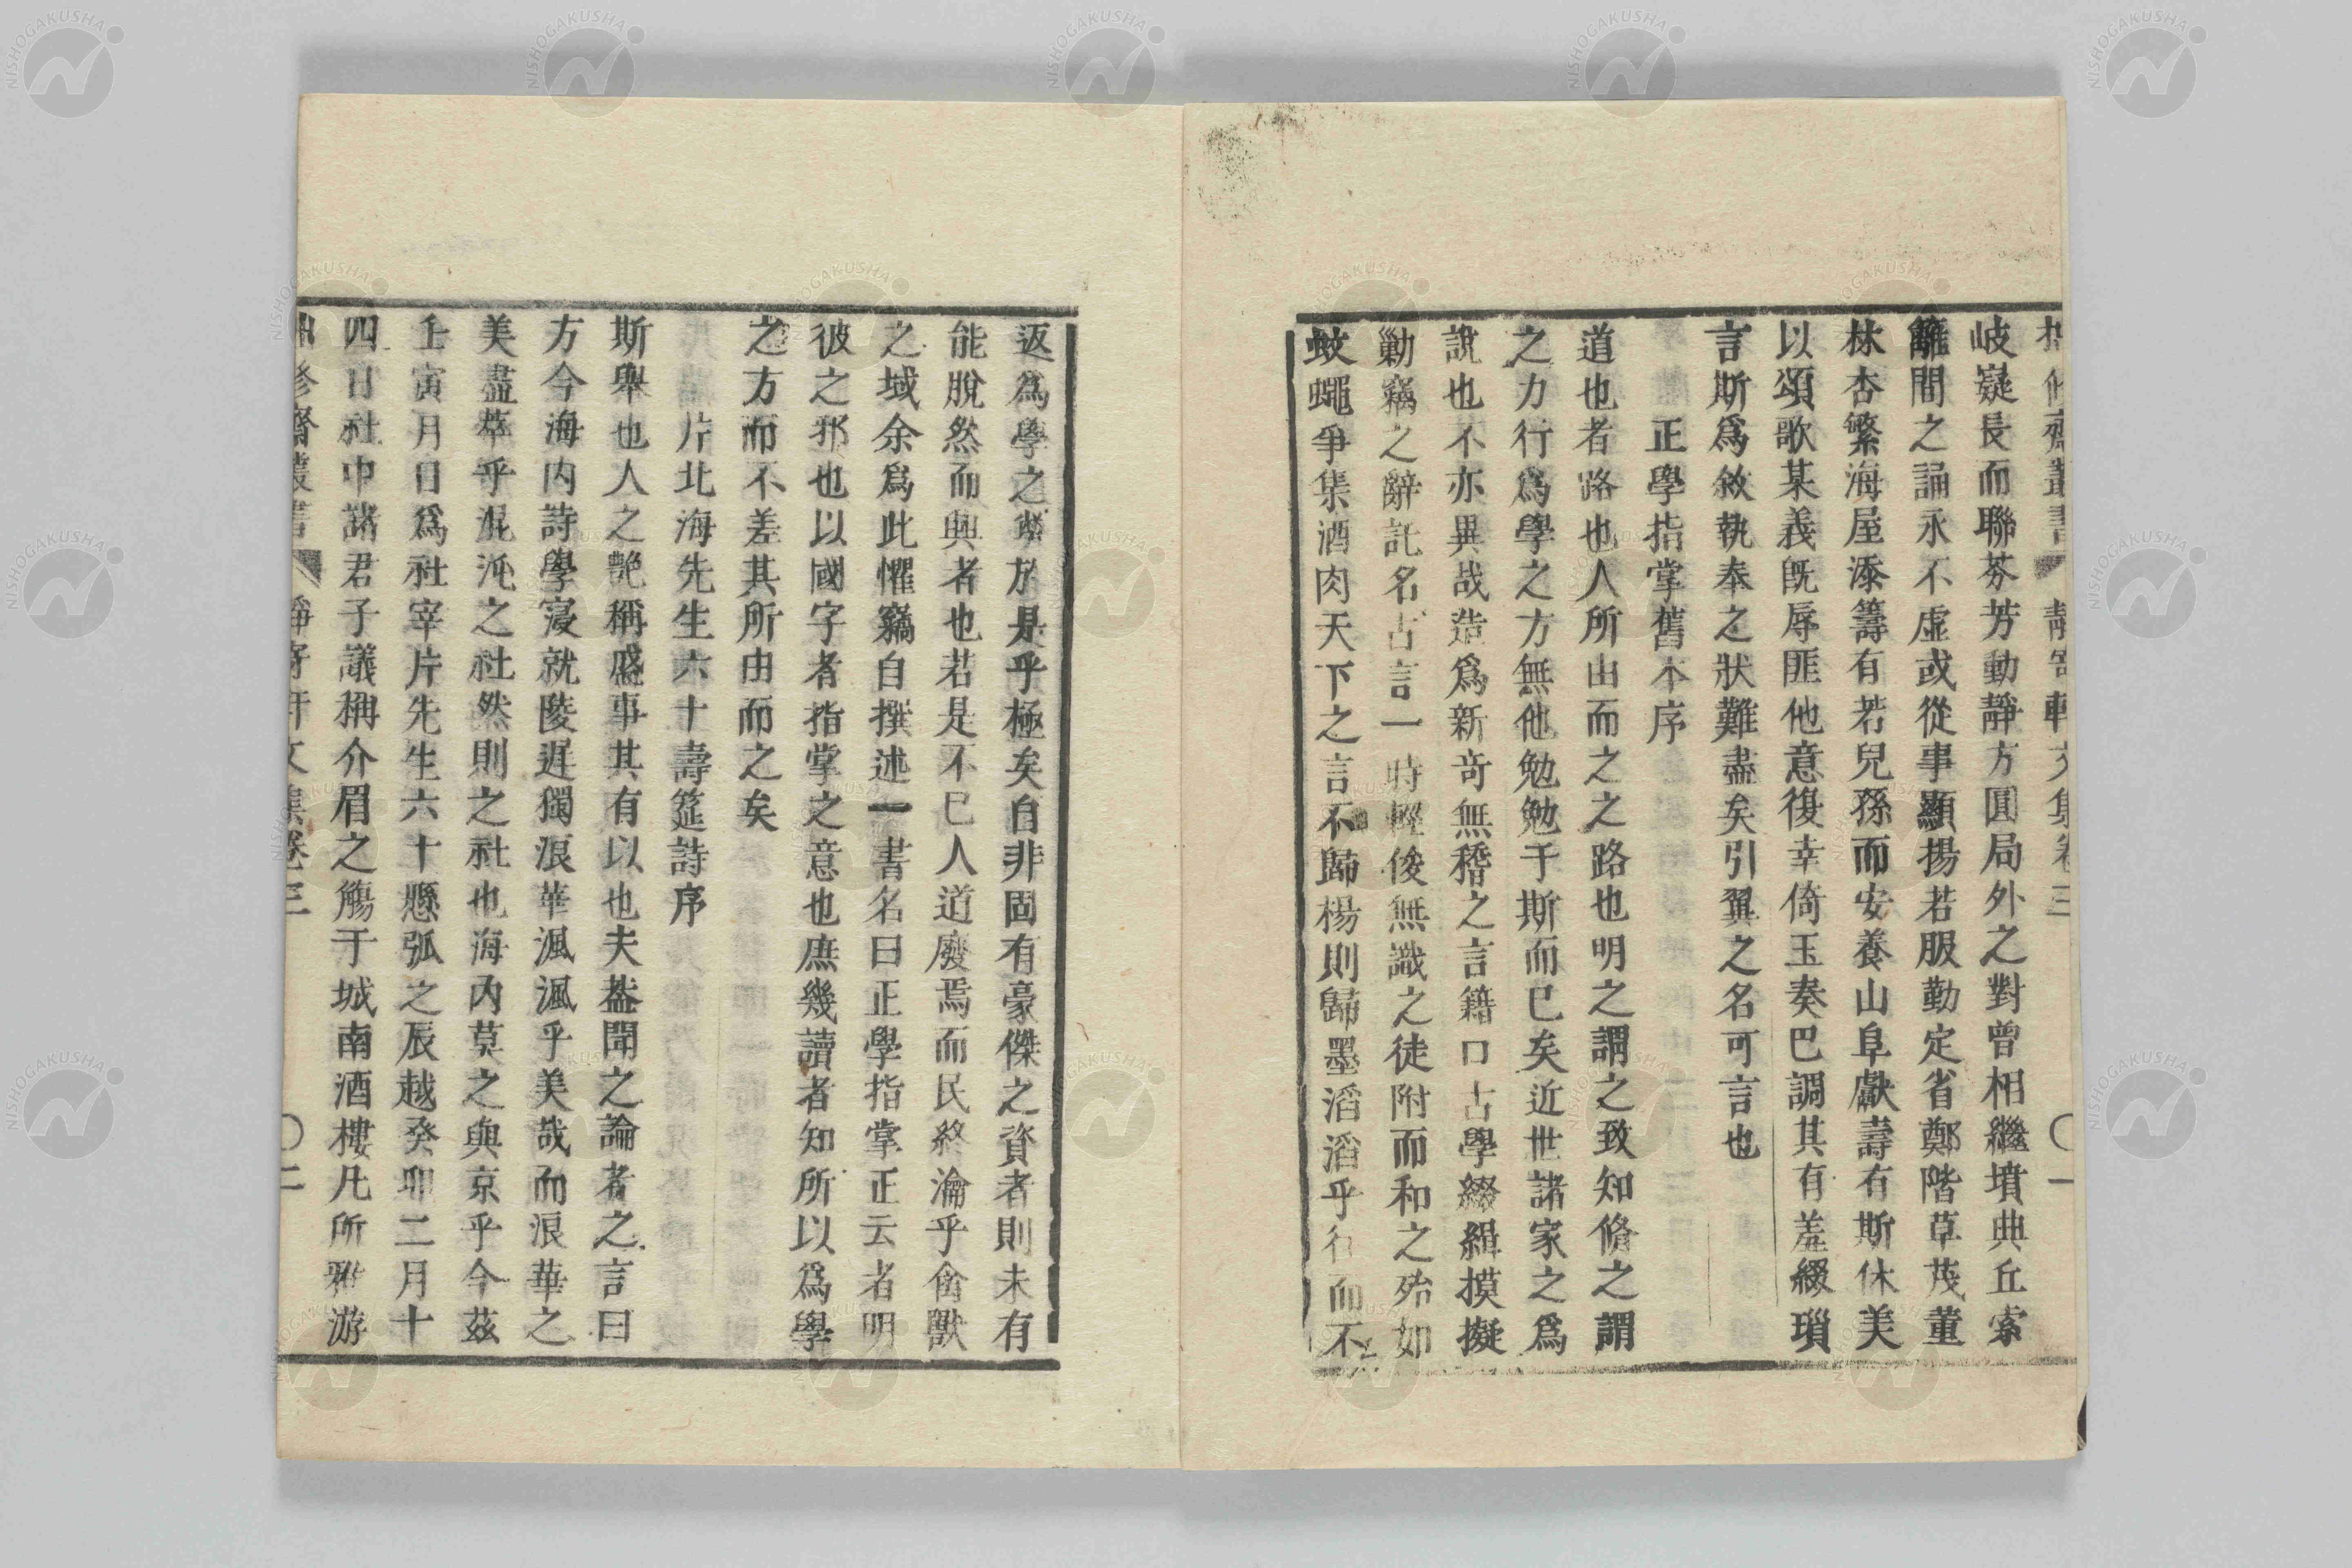 岐嶷長而聯芬芳動靜方圓局外之對曾相繼墳典丘索
籬間之誦永不虛或從事顯揚若服勤定省鄭階草茂董
林杏繁海屋添籌有若兒孫而安養山阜獻壽有斯休美
以頌歌某義旣辱匪他意復幸倚玉奏巴調其有羞綴瑣
言斯爲敘執奉之狀難盡矣引翼之名可言也
正學指掌舊本序
道也者路也人所由而之之路也明之謂之致知脩之謂
之力行爲學之方無他勉勉于斯而已矣近世諸家之爲
說也不亦異哉造爲新奇無稽之言籍口古學綴緝摸擬
勦竊之辭託名古言一時輕俊無識之徒附而和之殆如
蚊蠅爭集酒肉天下之言不歸楊則歸墨滔滔乎往而不
返爲學之弊於是乎極矣自非固有豪傑之資者則未有
能脫然而興者也若是不已人道廢焉而民終瀹乎禽獸
之域余爲此懼竊自撰述一書名曰正學指掌正云者明
彼之邪也以國字者指掌之意也庶幾讀者知所以爲學
之方而不差其所由而之矣
片北海先生六十壽筵詩序
斯舉也人之艷稱盛事其有以也夫葢聞之論者之言曰
方今海內詩學寖就陵遲獨浪華渢渢乎美哉而浪華之
美盡萃乎混沌之社然則之社也海內莫之與京乎今茲
壬寅月日爲社宰片先生六十懸弧之辰越癸卯二月十
四日社中諸君子議稱介眉之觴于城南酒樓凡所雅游
修齋叢書 靜寄軒文集卷三 〇二
NISHOGAKUSHA